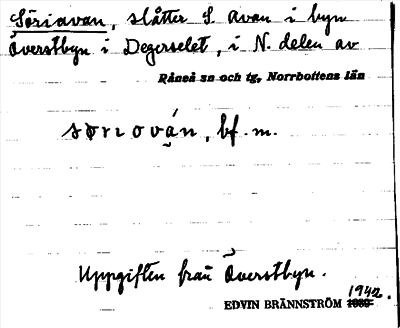 Söriavan, slåtter S. Avan i byn
Överstbyn i Degerselet, i N. delen av
Råneå sn och tg, Norrbottens län
sǫrıován, bf. m.
Uppgiften från Överstbyn.
EDVIN BRÄNNSTRÖM 1942.